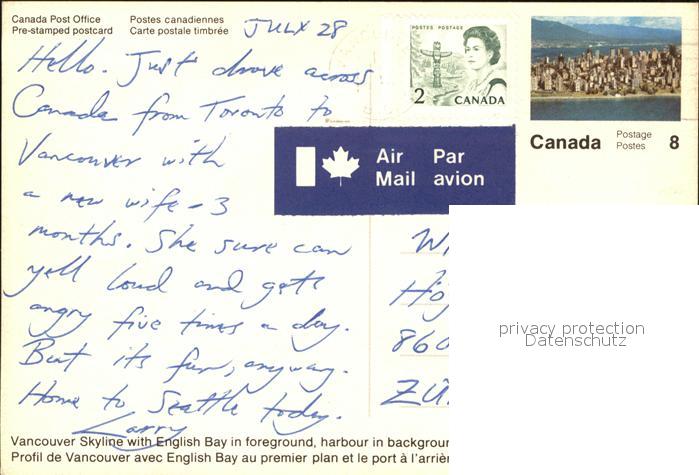 Canada Post Office
Pre-stamped postcard
Postes canadiennes
Carte postale timbrée
JULY 28
Hello. Just drove across
Canada from Toronto to
Vancouver with
a new wife - 3
months. She sure can
yell loud and gets
angry five times a day.
But its fun, anyway.
Home to Seattle today.
Larry
POSTES POSTAGE
2 CANADA
Canada
Postage
Postes
8
Air Mail
Par avion
860
ZÜ
privacy protection
Datenschutz
Vancouver Skyline with English Bay in foreground, harbour in backgrour
Profil de Vancouver avec English Bay au premier plan et le port à l'arrièr